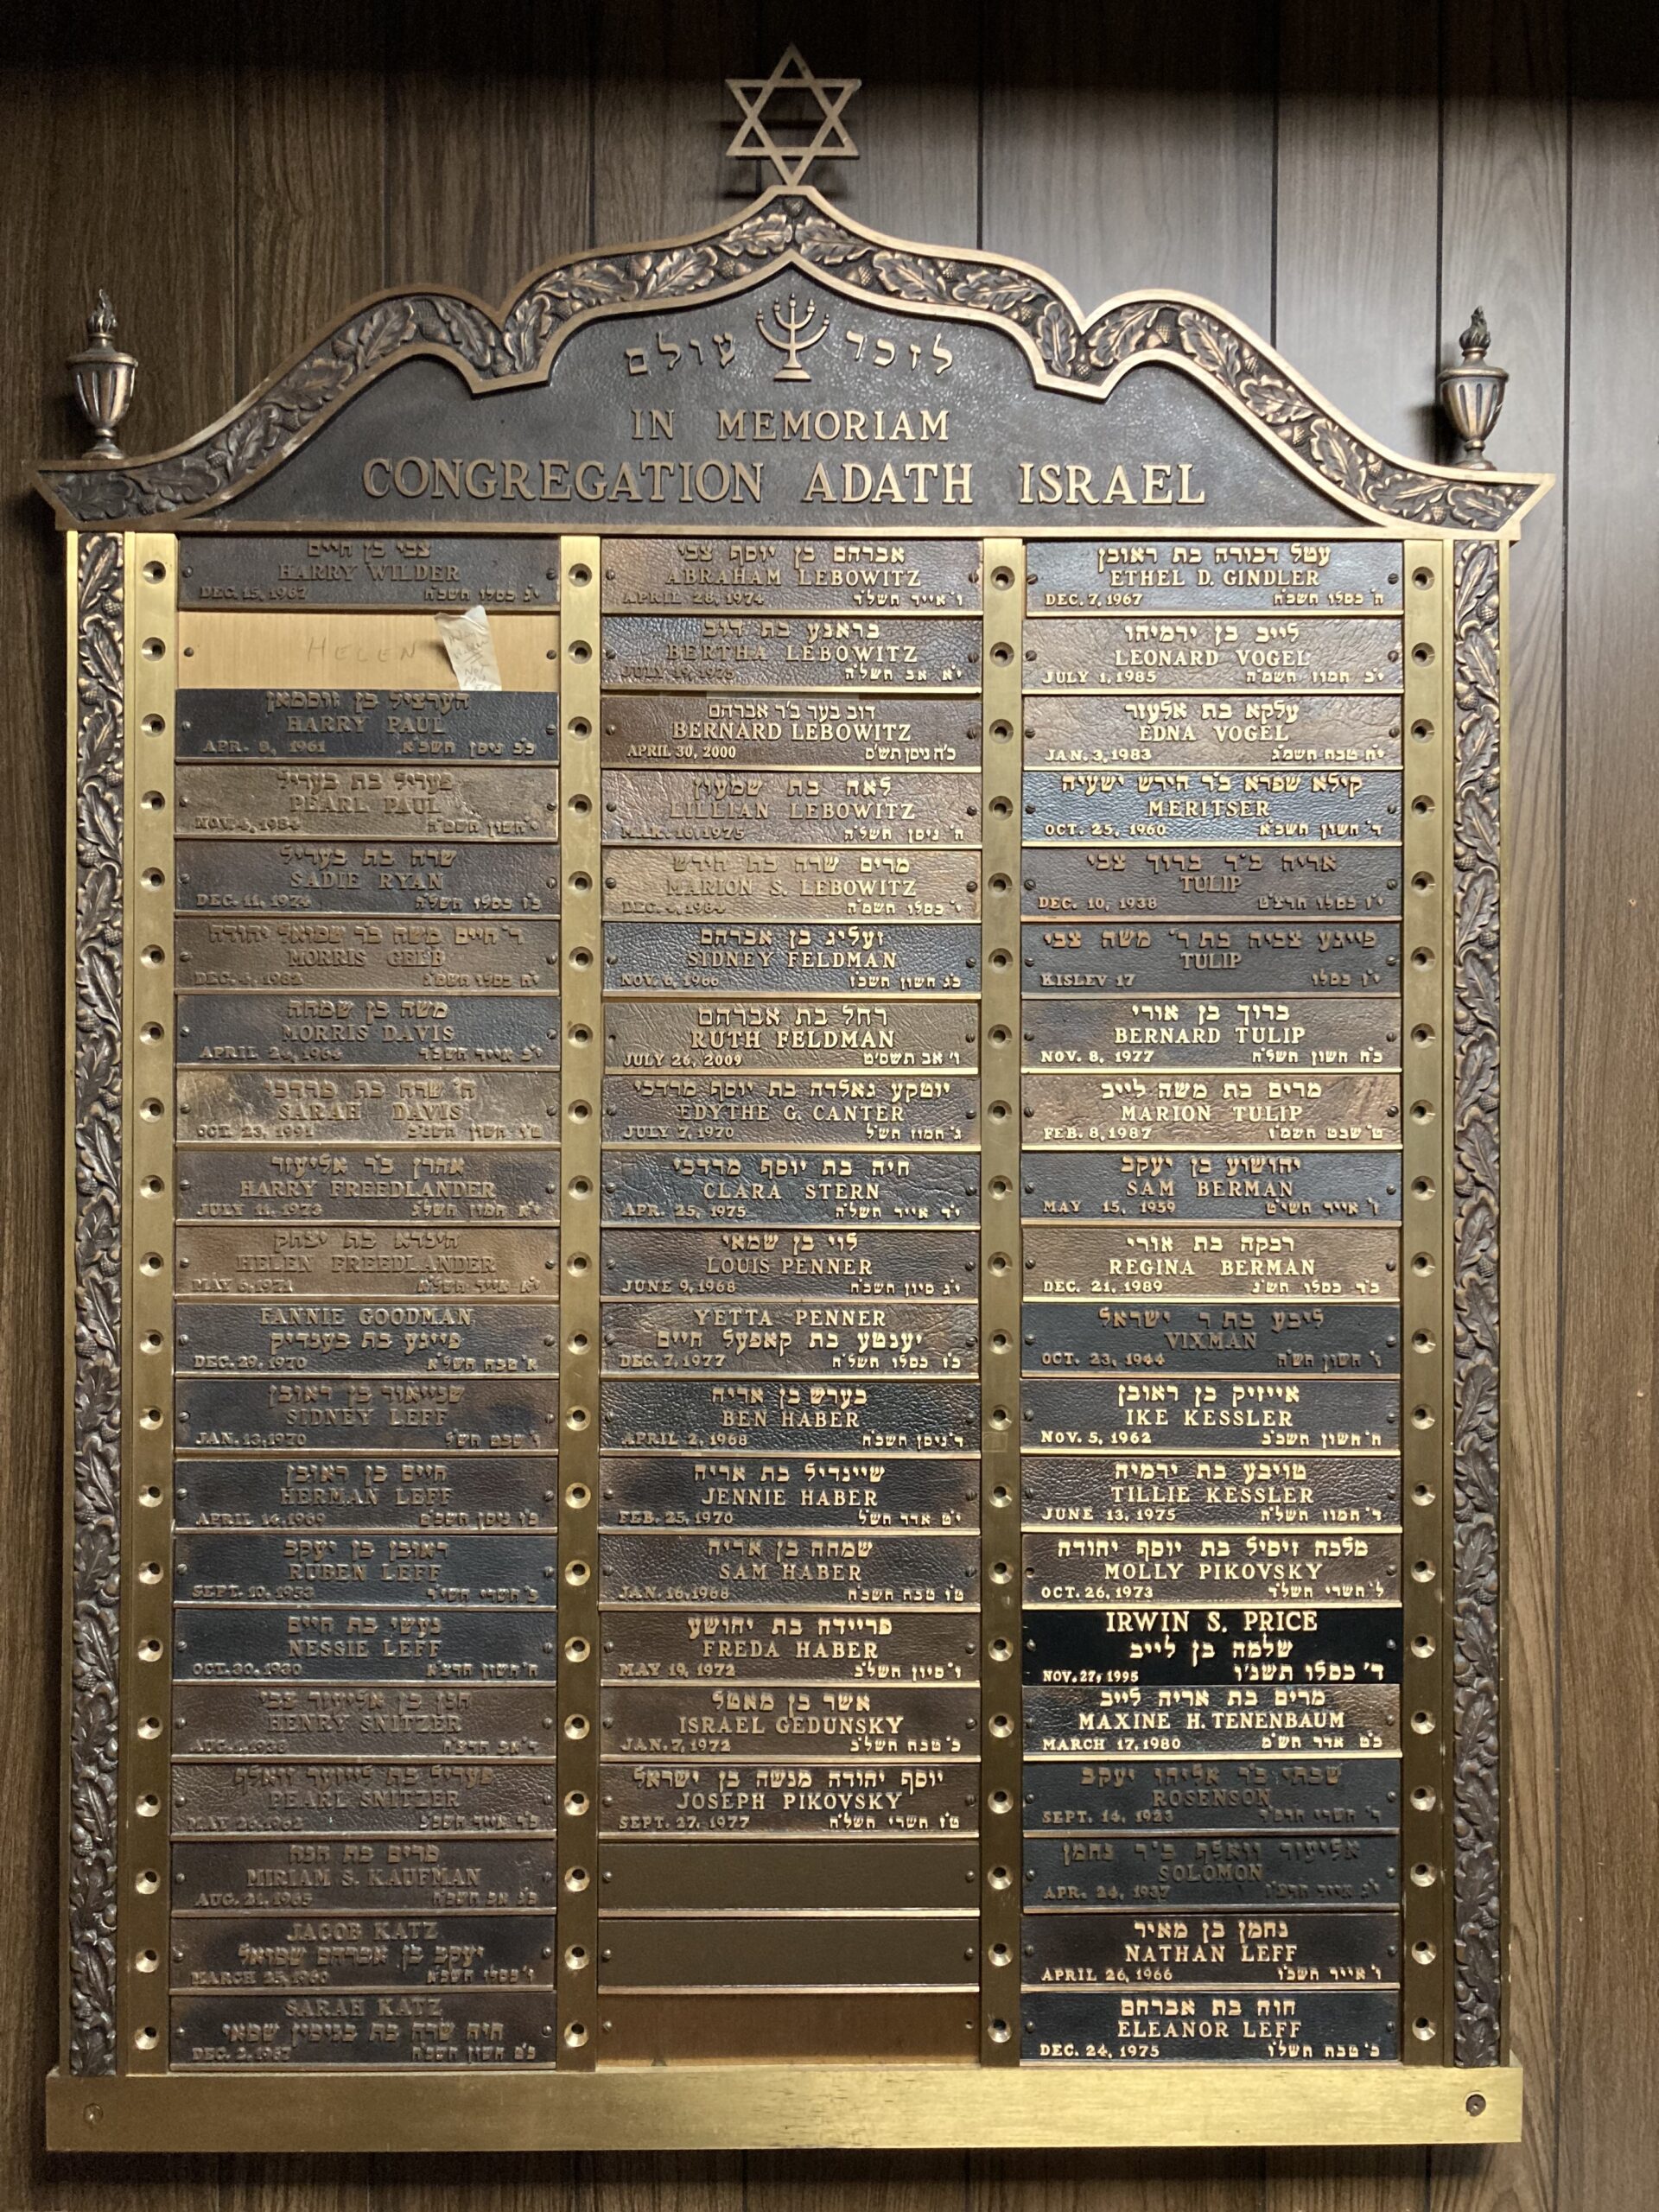 לזכר עולם
IN MEMORIAM
CONGREGATION ADATH ISRAEL
צבי בן חיים
HARRY WILDER
DEC. 15, 1967 י"ג כסלו תשכ"ח
HELEN
הערציל בן
HARRY PAUL
APR. 8, 1961 כ"ב ניסן תשכ"א
פעריל בת בעריל
PEARL PAUL
NOV. 4, 1984
שרה בת בעריל
SADIE RYAN
DEC. 11, 1974 כ"ז כסלו תשל"ה
ר' חיים משה ב"ר שמואל יהודה
MORRIS GELB
DEC. 4, 1982 י"ח כסלו תשמ"ג
משה בן שמחה
MORRIS DAVIS
APRIL 24, 1964 י"ב אייר תשכ"ד
ה' שרה בת מרדכי
SARAH DAVIS
OCT. 23, 1991 ט"ו חשון תשנ"ב
אהרן ב"ר אליעזר
HARRY FREEDLANDER
JULY 11, 1973 י"א תמוז תשל"ג
בת יצחק
HELEN FREEDLANDER
MAY 6, 1971 י"א אייר תשל"א
FANNIE GOODMAN
פייגע בת בענדיק
DEC. 29, 1970 א' טבת תשל"א
שנייאור בן ראובן
SIDNEY LEFF
JAN. 13, 1970 ו' שבט תש"ל
חיים בן ראובן
HERMAN LEFF
APRIL 14, 1969 כ"ו ניסן תשכ"ט
ראובן בן יעקב
RUBEN LEFF
SEPT. 10, 1953 תשרי תשי"ד
נעשי בת חיים
NESSIE LEFF
OCT. 30, 1930 ח' חשון תרצ"א
חנן בן אליעזר צבי
HENRY SNITZER
AUG. 1, 1938 ד' אב תרצ"ח
פעריל בת ליווער וואלף
PEARL SNITZER
MAY 26, 1962 אייר תשכ"ב
מרים בת חנה
MIRIAM S. KAUFMAN
AUG. 21, 1965 אב תשכ"ה
JACOB KATZ
יעקב בן אברהם שמואל
MARCH 25, 1960
SARAH KATZ
חיה שרה בת בנימין שמאי
DEC. 2, 1967 חשון תשכ"ח
אברהם בן יוסף צבי
ABRAHAM LEBOWITZ
APRIL 28, 1974 ו' אייר תשל"ד
בראנע בת דוב
BERTHA LEBOWITZ
JULY 19, 1975 י"א אב תשל"ה
דוב בער ב"ר אברהם
BERNARD LEBOWITZ
APRIL 30, 2000 כ"ה ניסן תש"ס
לאה בת שמעון
LILLIAN LEBOWITZ
MAR. 16, 1975 ה' ניסן תשל"ה
מרים שרה בת הירש
MARION S. LEBOWITZ
DEC. 4, 1984 י' כסלו תשמ"ה
זעליג בן אברהם
SIDNEY FELDMAN
NOV. 6, 1966 כ"ג חשון תשכ"ז
רחל בת אברהם
RUTH FELDMAN
JULY 26, 2009 ו' אב תשס"ט
יוטקע גאלדה בת יוסף מרדכי
EDYTHE G. CANTER
JULY 7, 1970 ג' תמוז תש"ל
חיה בת יוסף מרדכי
CLARA STERN
APR. 25, 1975 י"ד אייר תשל"ה
לוי בן שמאי
LOUIS PENNER
JUNE 9, 1968 י"ג סיון תשכ"ח
YETTA PENNER
יענטע בת קאפעל חיים
DEC. 7, 1977 כ"ז כסלו תשל"ח
בערש בן אריה
BEN HABER
APRIL 2, 1968 ד' ניסן תשכ"ח
שיינדיל בת אריה
JENNIE HABER
FEB. 25, 1970 י"ט אדר תש"ל
שמחה בן אריה
SAM HABER
JAN. 16, 1968 ט"ו טבת תשכ"ח
פריידה בת יהושע
FREDA HABER
MAY 19, 1972 ו' סיון תשל"ב
אשר בן מאטל
ISRAEL GEDUNSKY
JAN. 7, 1972 כ' טבת תשל"ב
יוסף יהודה מנשה בן ישראל
JOSEPH PIKOVSKY
SEPT. 27, 1977 ט"ו תשרי תשל"ח
עטל דבורה בת ראובן
ETHEL D. GINDLER
DEC. 7, 1967 ה' כסלו תשכ"ח
לייב בן ירמיהו
LEONARD VOGEL
JULY 1, 1985 י"ב תמוז תשמ"ה
עלקא בת אלעזר
EDNA VOGEL
JAN. 3, 1983 י"ח טבת תשמ"ג
קילא שפרא ב"ר הירש ישעיה
MERITSER
OCT. 25, 1960 ד' חשון תשכ"א
אריה ב"ר ברוך צבי
TULIP
DEC. 10, 1938 י"ז כסלו תרצ"ט
פייגע צביה בת ר' משה צבי
TULIP
KISLEV 17 י"ז כסלו
ברוך בן אורי
BERNARD TULIP
NOV. 8, 1977 כ"ח חשון תשל"ח
מרים בת משה לייב
MARION TULIP
FEB. 8, 1987 ט' שבט תשמ"ז
יהושוע בן יעקב
SAM BERMAN
MAY 15, 1959 ז' אייר תשי"ט
רבקה בת אורי
REGINA BERMAN
DEC. 21, 1989 כ"ד כסלו תש"נ
ליבע בת ר ישראל
VIXMAN
OCT. 23, 1944 ו' חשון תש"ה
אייזיק בן ראובן
IKE KESSLER
NOV. 5, 1962 ח' חשון תשכ"ג
טויבע בת ירמיה
TILLIE KESSLER
JUNE 13, 1975 ד' תמוז תשל"ה
מלכה זיסיל בת יוסף יהודה
MOLLY PIKOVSKY
OCT. 26, 1973 ל' תשרי תשל"ד
IRWIN S. PRICE
שלמה בן לייב
NOV. 27, 1995 ד' כסלו תשנ"ו
מרים בת אריה לייב
MAXINE H. TENENBAUM
MARCH 17, 1980 כ"ט אדר תש"מ
שבתי ב"ר אליהו יעקב
ROSENSON
SEPT. 14, 1923 ד' תשרי תרפ"ד
אליעזר וואלף ב"ר נחמן
SOLOMON
APR. 24, 1937 י"ג אייר תרצ"ז
נחמן בן מאיר
NATHAN LEFF
APRIL 26, 1966 ו' אייר תשכ"ו
חוה בת אברהם
ELEANOR LEFF
DEC. 24, 1975 כ' טבת תשל"ו